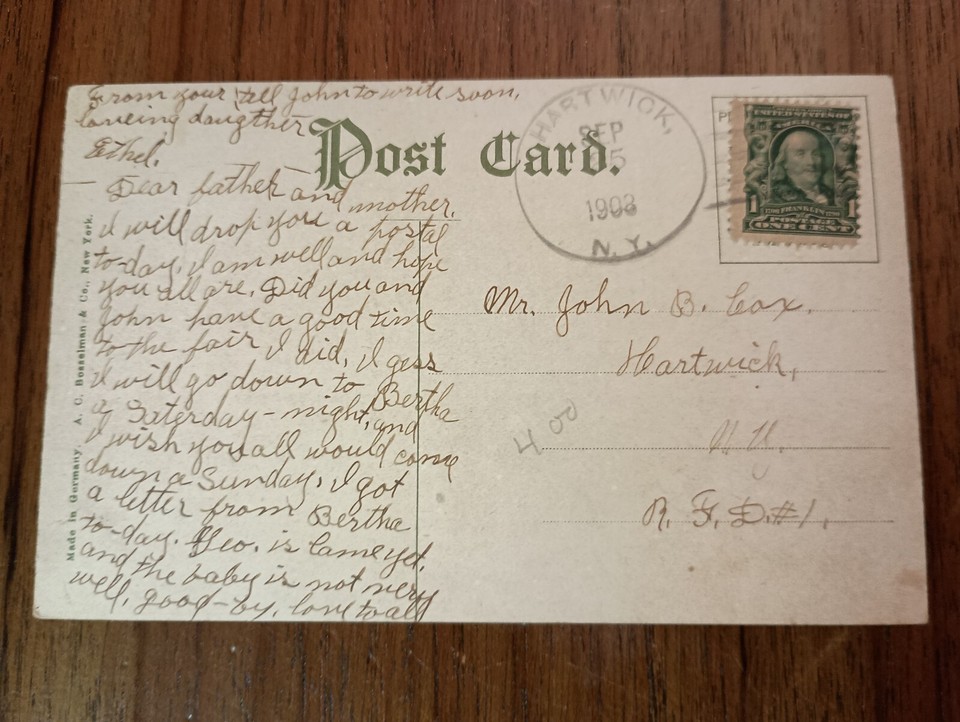 From your tell John to write soon,
loveing daugther
Ethel.
Post Card.
Dear father and mother.
I will drop you a postal
to-day, I am well and hope
you all are. Did you and
John have a good time
to the fair I did, I gess
I will go down to Bertha
a Saterday-night, and
I wish you all would come
down a Sunday, I got
a letter from Bertha
to-day. Geo. is lame yet,
and the baby is not very
well, good-by, love to all
Made in Germany. A. C. Bosselman & Co., New York.
HARTWICK,
SEP
5
1908
N.Y.
UNITED STATES OF
1 FRANKLIN 1
POSTAGE
ONE CENT
Mr. John B. Cox.
Hartwick,
N.Y.
R. F. D. #1.
4 00